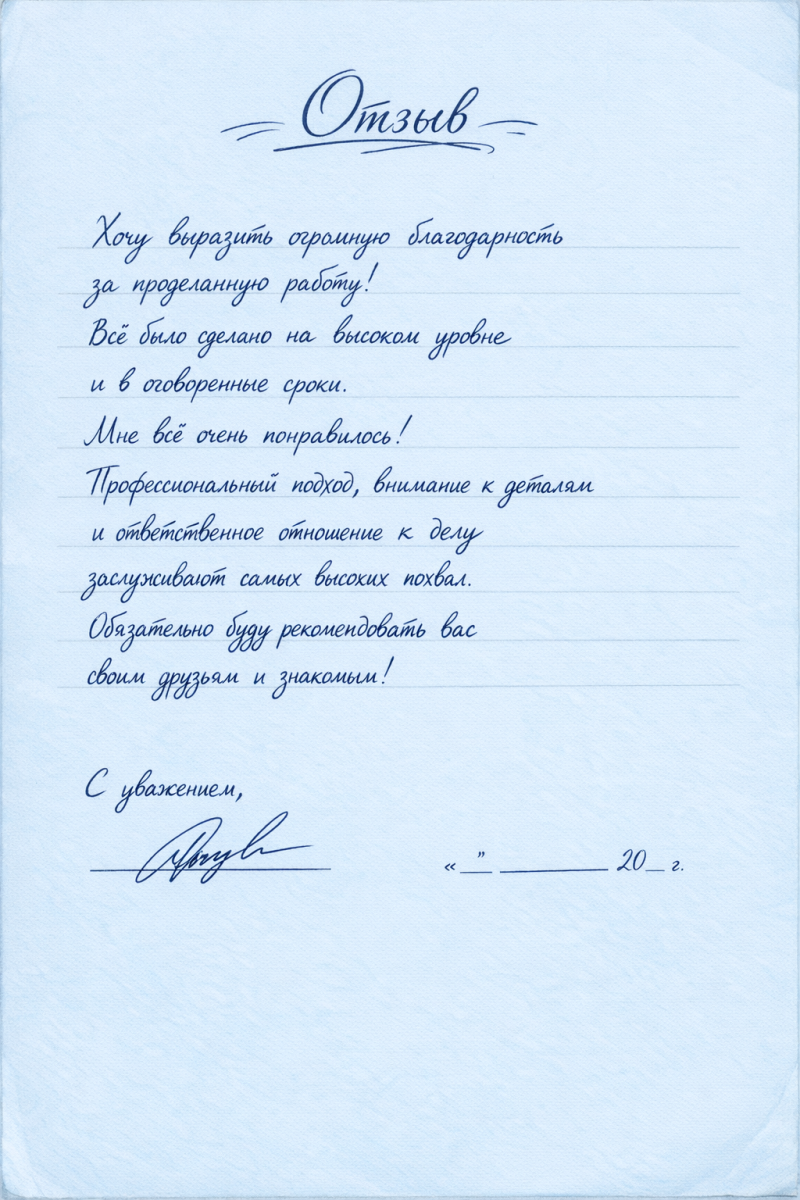 Отзыв
Хочу выразить огромную благодарность
за проделанную работу!
Всё было сделано на высоком уровне
и в оговоренные сроки.
Мне всё очень понравилось!
Профессиональный подход, внимание к деталям
и ответственное отношение к делу
заслуживают самых высоких похвал.
Обязательно буду рекомендовать вас
своим друзьям и знакомым!
С уважением,
«__» ________ 20__ г.